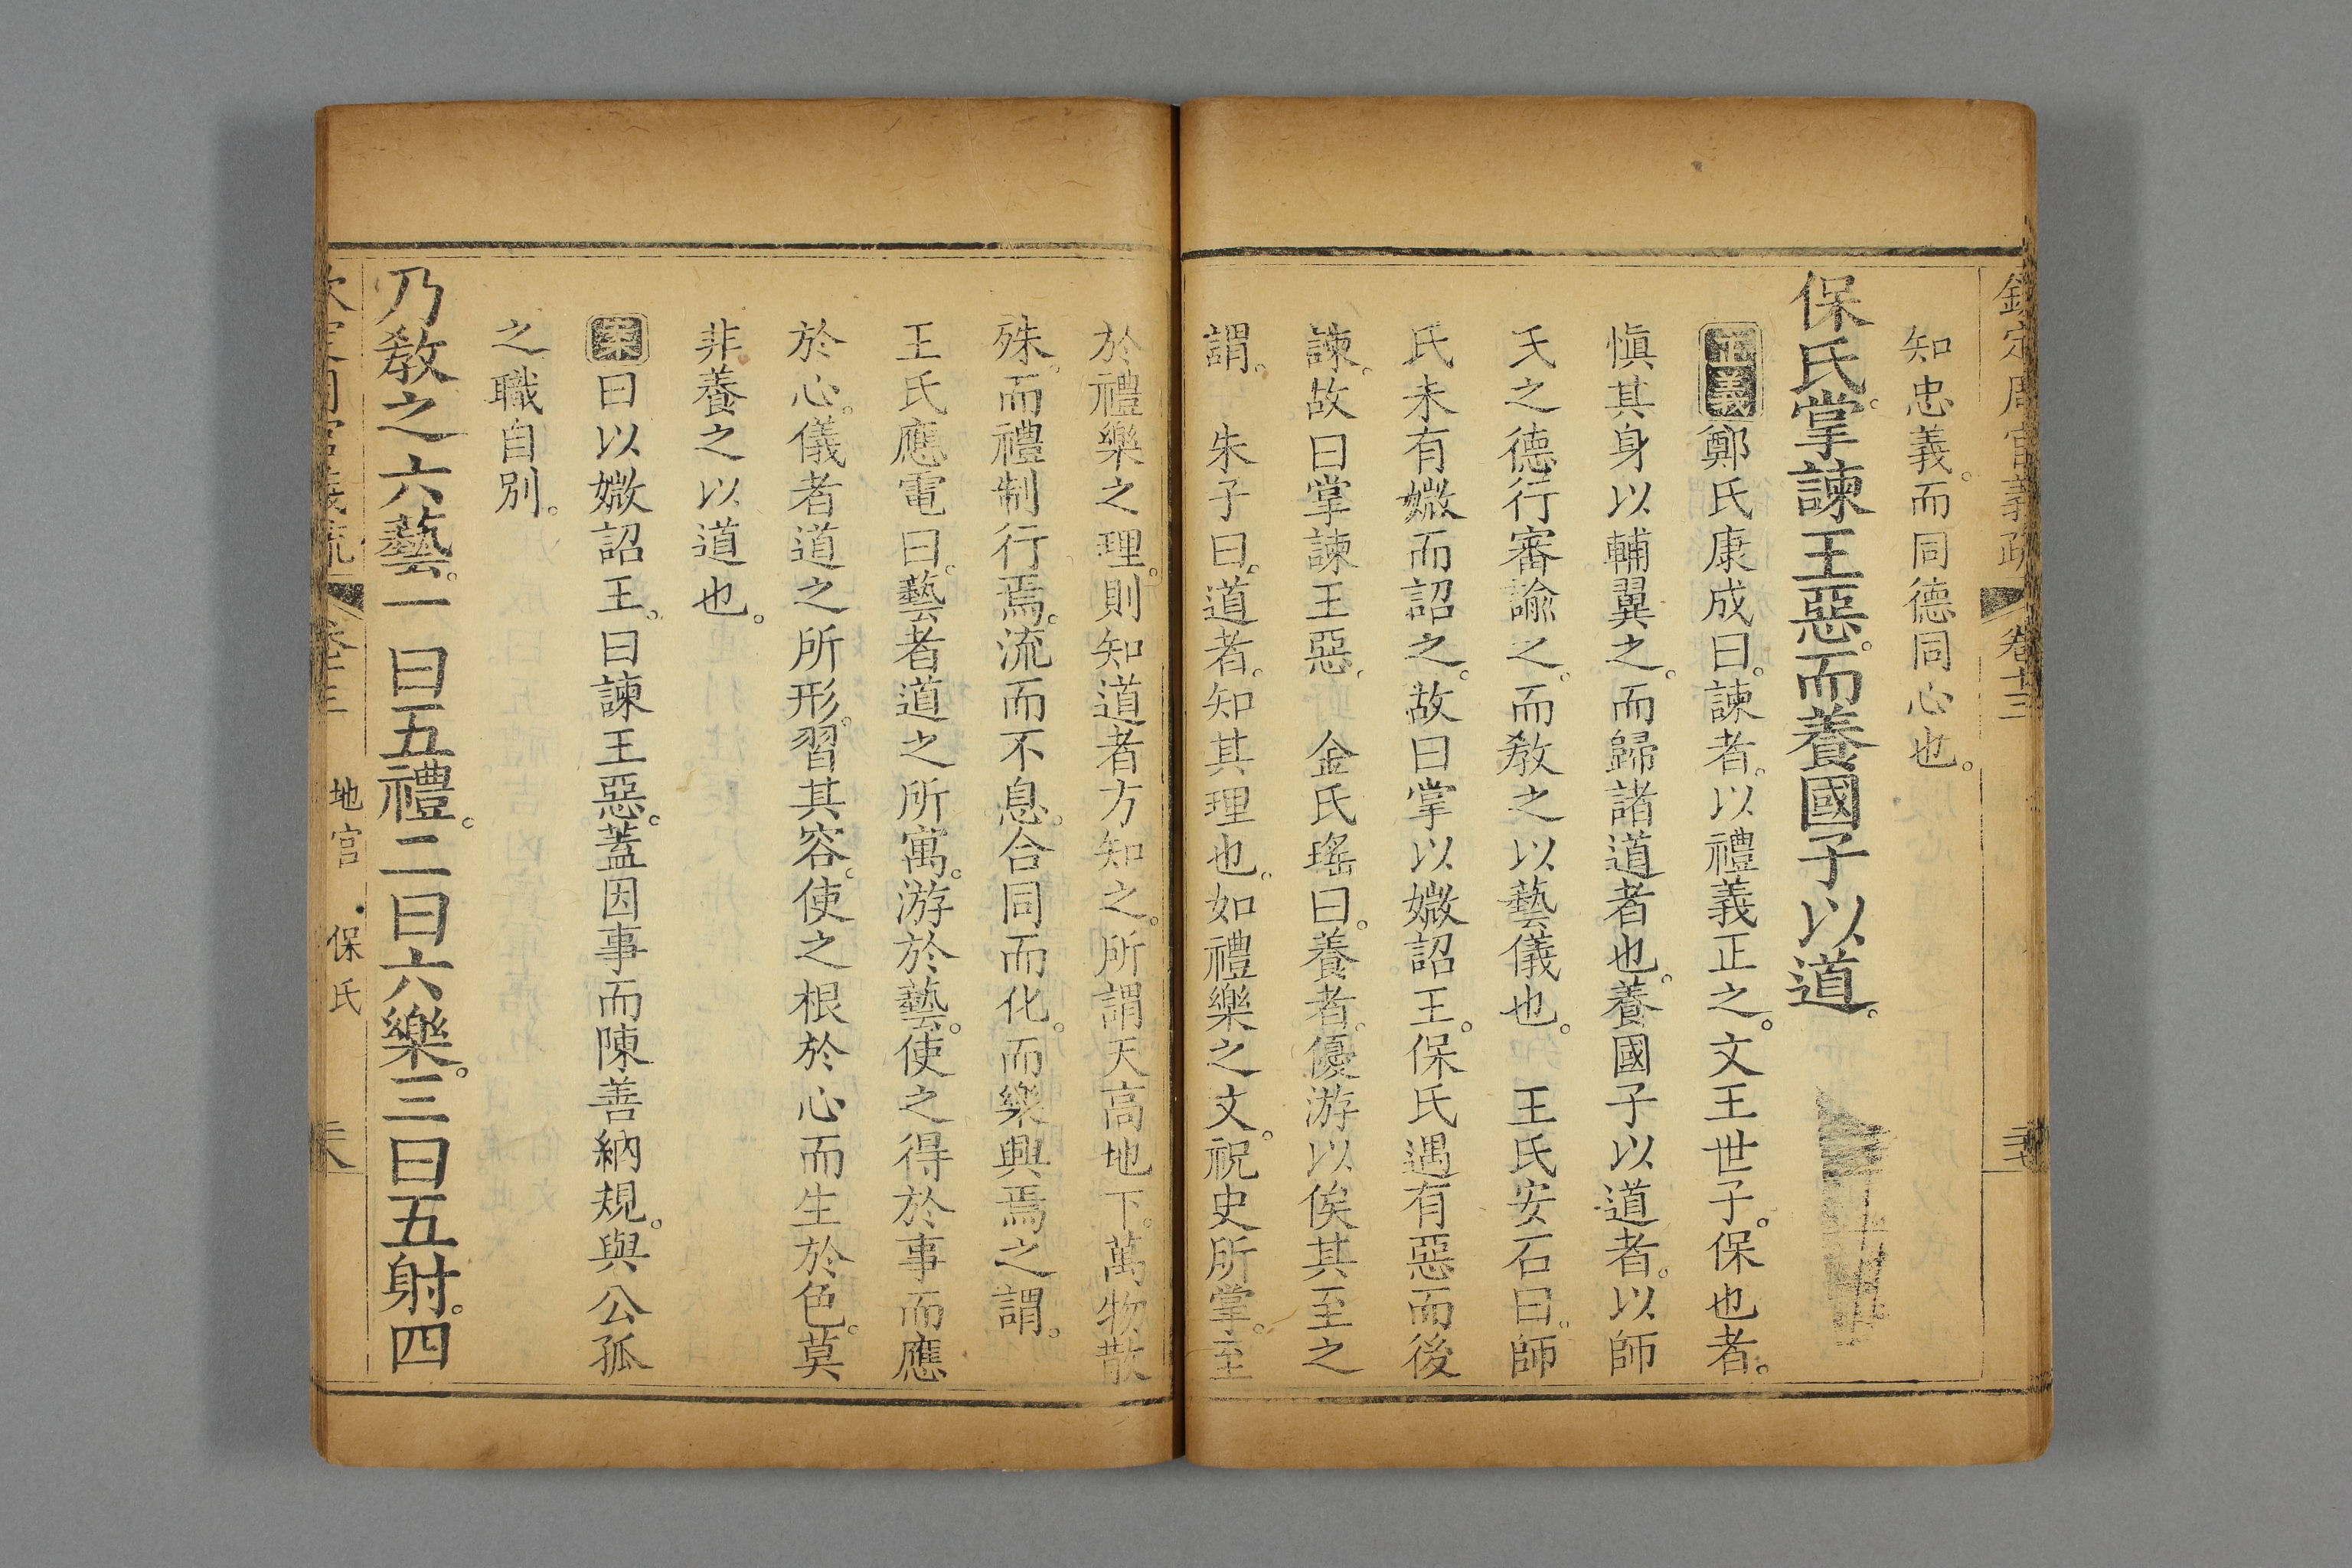 欽定周官義疏 卷十三
知忠義。而同德同心也。
保氏。掌諫王惡。而養國子以道。
正義鄭氏康成曰。諫者。以禮義正之。文王世子。保也者。
慎其身以輔翼之。而歸諸道者也。養國子以道者。以師
氏之德行審諭之。而教之以藝儀也。　王氏安石曰。師
氏未有媺而詔之。故曰掌以媺詔王。保氏遇有惡而後
諫。故曰掌諫王惡。　金氏瑤曰。養者。優游以俟其至之
謂。　朱子曰。道者。知其理也。如禮樂之文。祝史所掌。至
於禮樂之理。則知道者方知之。所謂天高地下。萬物散
殊。而禮制行焉。流而不息。合同而化。而樂興焉之謂。
王氏應電曰。藝者道之所寓。游於藝。使之得於事而應
於心。儀者道之所形。習其容。使之根於心而生於色。莫
非養之以道也。
案曰以媺詔王。曰諫王惡。蓋因事而陳善納規。與公孤
之職自別。
乃教之六藝。一曰五禮。二曰六樂。三曰五射。四
欽定周官義疏 卷十三 地官 保氏